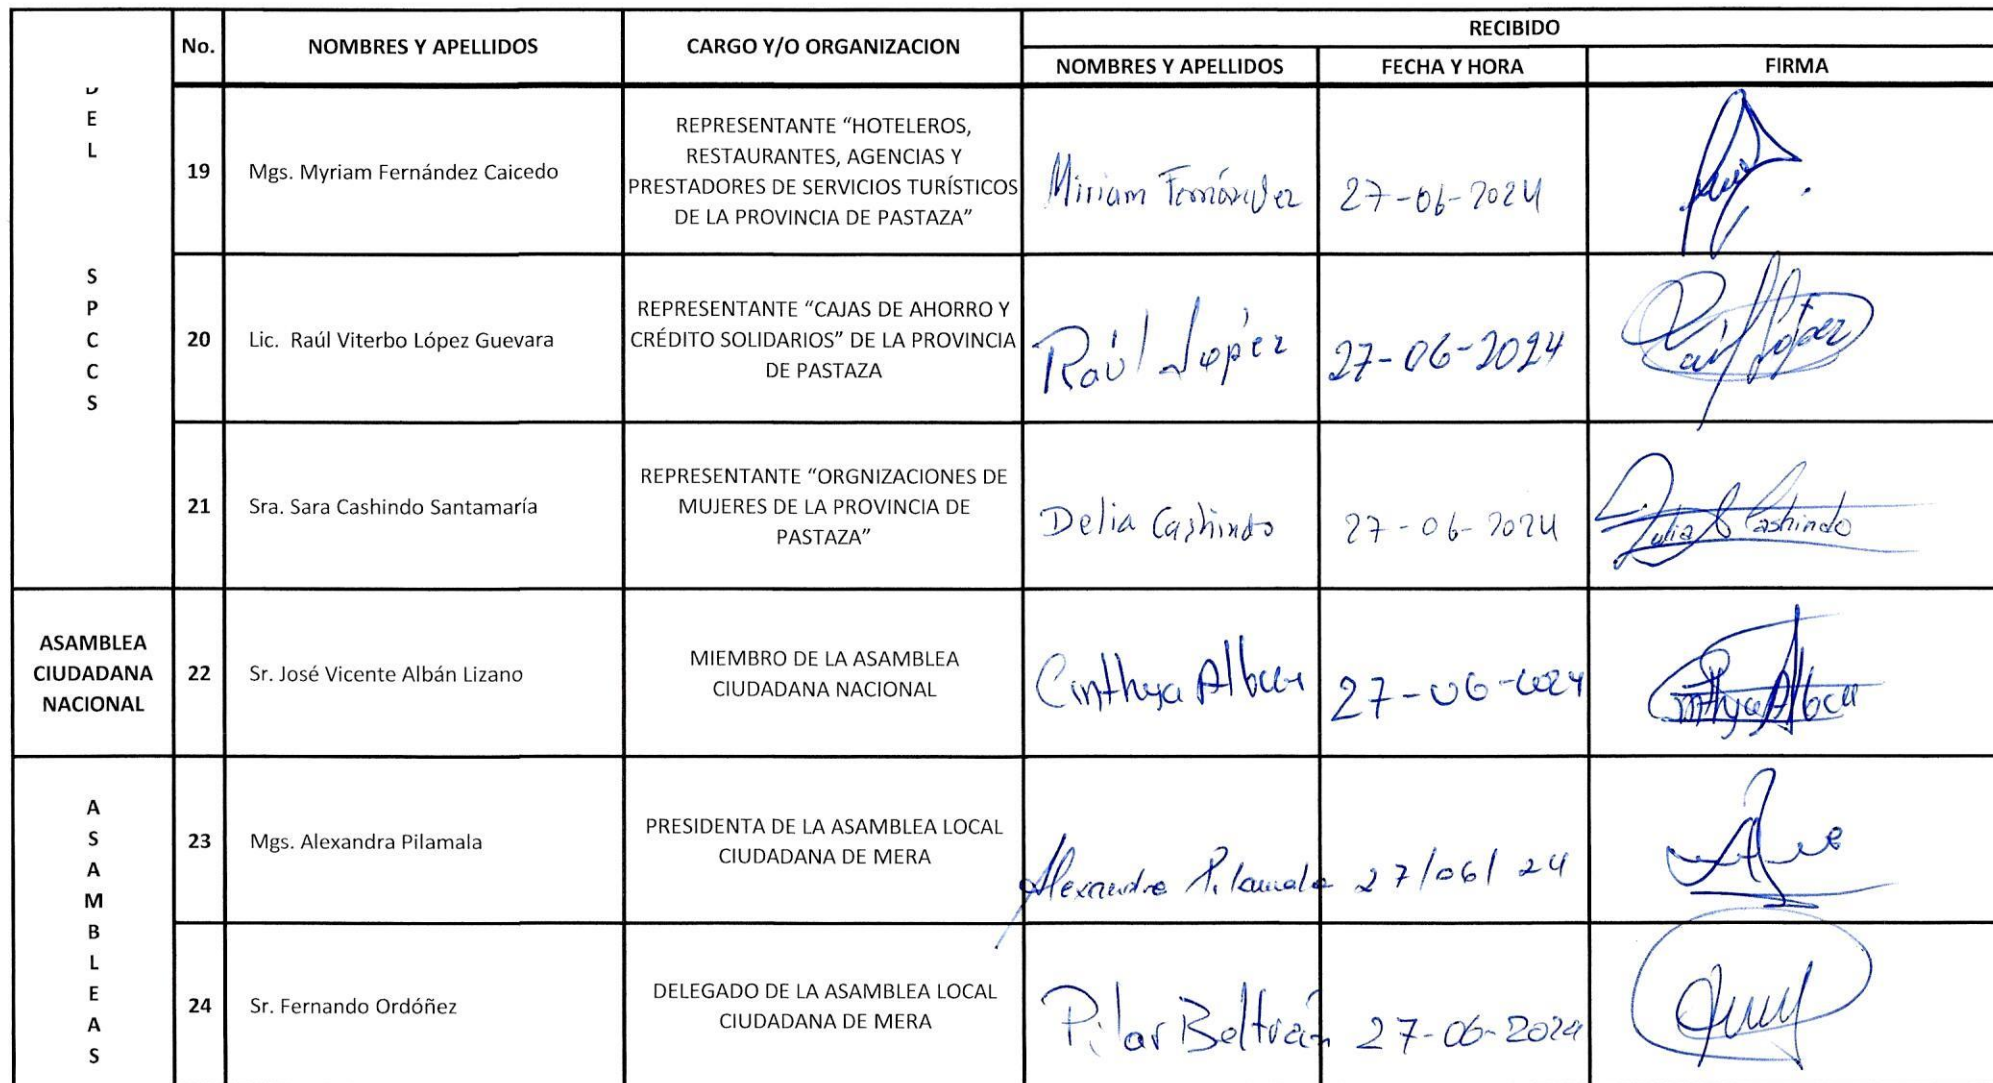 No. NOMBRES Y APELLIDOS CARGO Y/O ORGANIZACION RECIBIDO
NOMBRES Y APELLIDOS FECHA Y HORA FIRMA
D
E
L
S
P
C
C
S
19 Mgs. Myriam Fernández Caicedo
REPRESENTANTE “HOTELEROS,
RESTAURANTES, AGENCIAS Y
PRESTADORES DE SERVICIOS TURÍSTICOS
DE LA PROVINCIA DE PASTAZA”
Miriam Fernández 27-06-2024
20 Lic. Raúl Viterbo López Guevara
REPRESENTANTE “CAJAS DE AHORRO Y
CRÉDITO SOLIDARIOS” DE LA PROVINCIA
DE PASTAZA
Raúl López 27-06-2024
Raúl López
21 Sra. Sara Cashindo Santamaría
REPRESENTANTE “ORGNIZACIONES DE
MUJERES DE LA PROVINCIA DE
PASTAZA”
Delia Cashindo 27-06-2024
Cashindo
ASAMBLEA
CIUDADANA
NACIONAL
22 Sr. José Vicente Albán Lizano
MIEMBRO DE LA ASAMBLEA
CIUDADANA NACIONAL
Cinthya Alban 27-06-2024
Cinthya Alban
A
S
A
M
B
L
E
A
S
23 Mgs. Alexandra Pilamala
PRESIDENTA DE LA ASAMBLEA LOCAL
CIUDADANA DE MERA
Alexandra Pilamala 27/06/24
24 Sr. Fernando Ordóñez
DELEGADO DE LA ASAMBLEA LOCAL
CIUDADANA DE MERA
Pilar Beltrán 27-06-2024